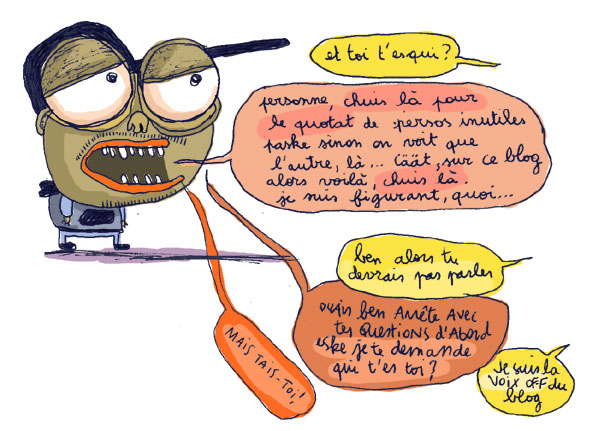 et toi t'esqui?
personne, chuis là pour
le quotat de persos inutiles
paske sinon on voit que
l'autre, là... Cäät, sur ce blog
alors voilà, chuis là.
je suis figurant, quoi...
ben alors tu
devrais pas parler
ouais ben Arrête Avec
tes Questions d'Abord
eske je te demande
qui t'es toi?
MAIS TAIS-TOI!
Je suis la
VOIX OFF du
blog